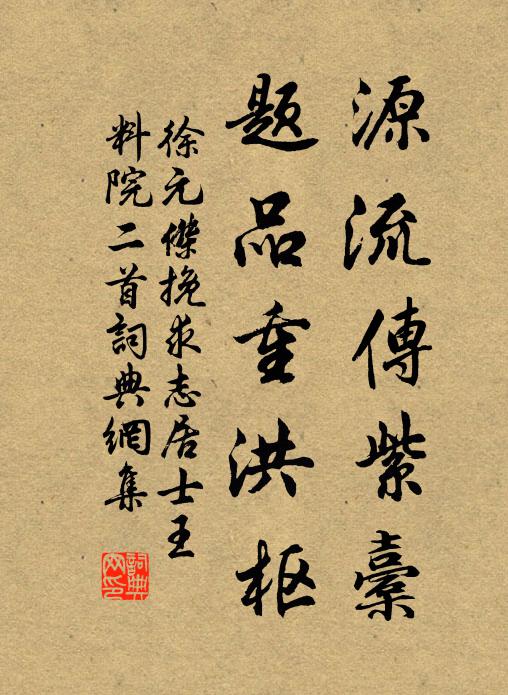 源流傳紫橐
題品重洪枢
徐元傑挽求志居士王
料院二首詞典網集
詞典网印